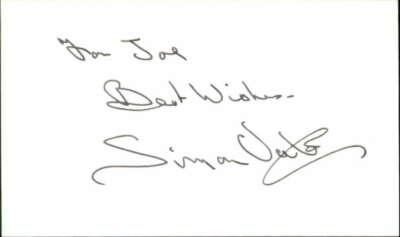 For Joe
Best Wishes
Simon